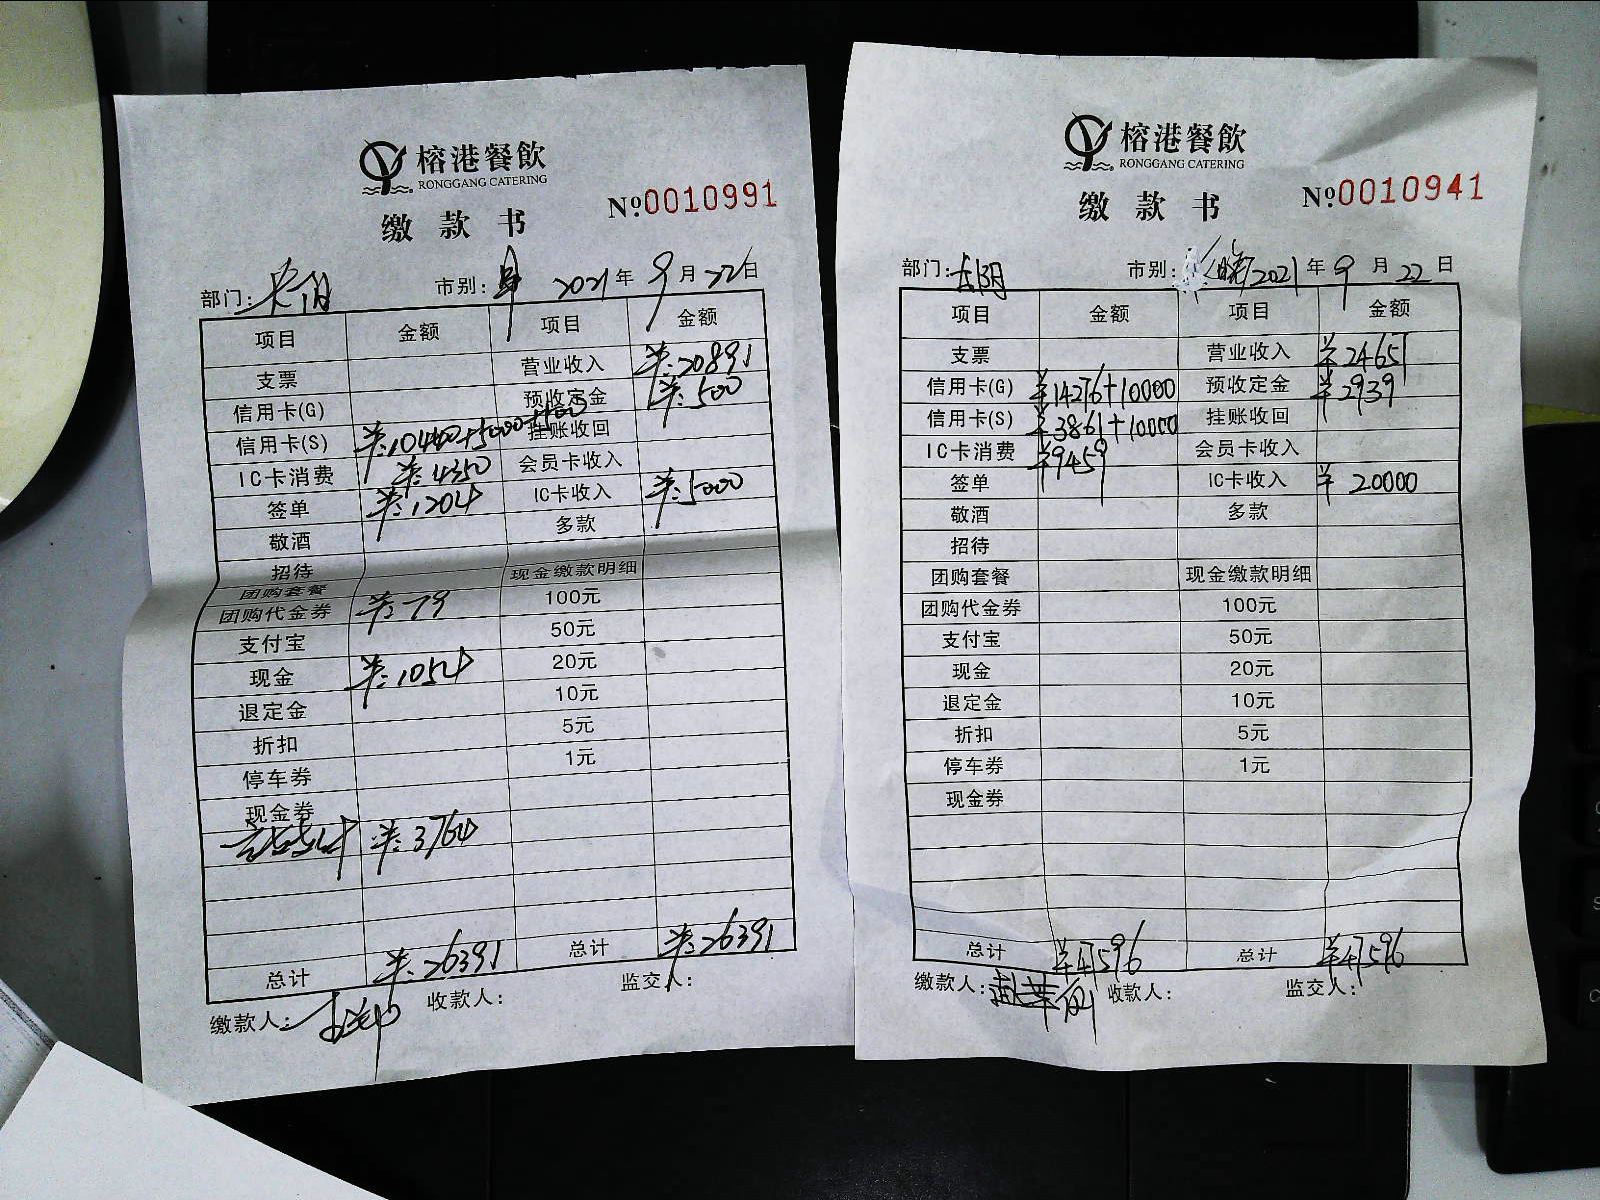 榕港餐飲
RONGGANG CATERING
缴款书
№0010991
部门: 市别: 2021年9月22日
项目 金额 项目 金额
支票 营业收入 ¥:20891
信用卡(G) 预收定金 ¥:500
信用卡(S) ¥:10440+5000+500 挂账收回
IC卡消费 ¥:4350 会员卡收入
签单 ¥:1204 IC卡收入 ¥:5000
敬酒 多款
招待
团购套餐 现金缴款明细
团购代金券 ¥:79 100元
支付宝 50元
现金 ¥:1054 20元
退定金 10元
折扣 5元
停车券 1元
现金券
¥:3764
总计 ¥:26391 总计 ¥:26391
缴款人: 收款人: 监交人:
榕港餐飲
RONGGANG CATERING
缴款书
№0010941
部门:长阳 市别: 晚 2021年9月22日
项目 金额 项目 金额
支票 营业收入 ¥24651
信用卡(G) ¥14276+10000 预收定金 ¥2939
信用卡(S) ¥3861+10000 挂账收回
IC卡消费 ¥9459 会员卡收入
签单 IC卡收入 ¥20000
敬酒 多款
招待
团购套餐 现金缴款明细
团购代金券 100元
支付宝 50元
现金 20元
退定金 10元
折扣 5元
停车券 1元
现金券
总计 ¥47596 总计 ¥47596
缴款人: 收款人: 监交人: